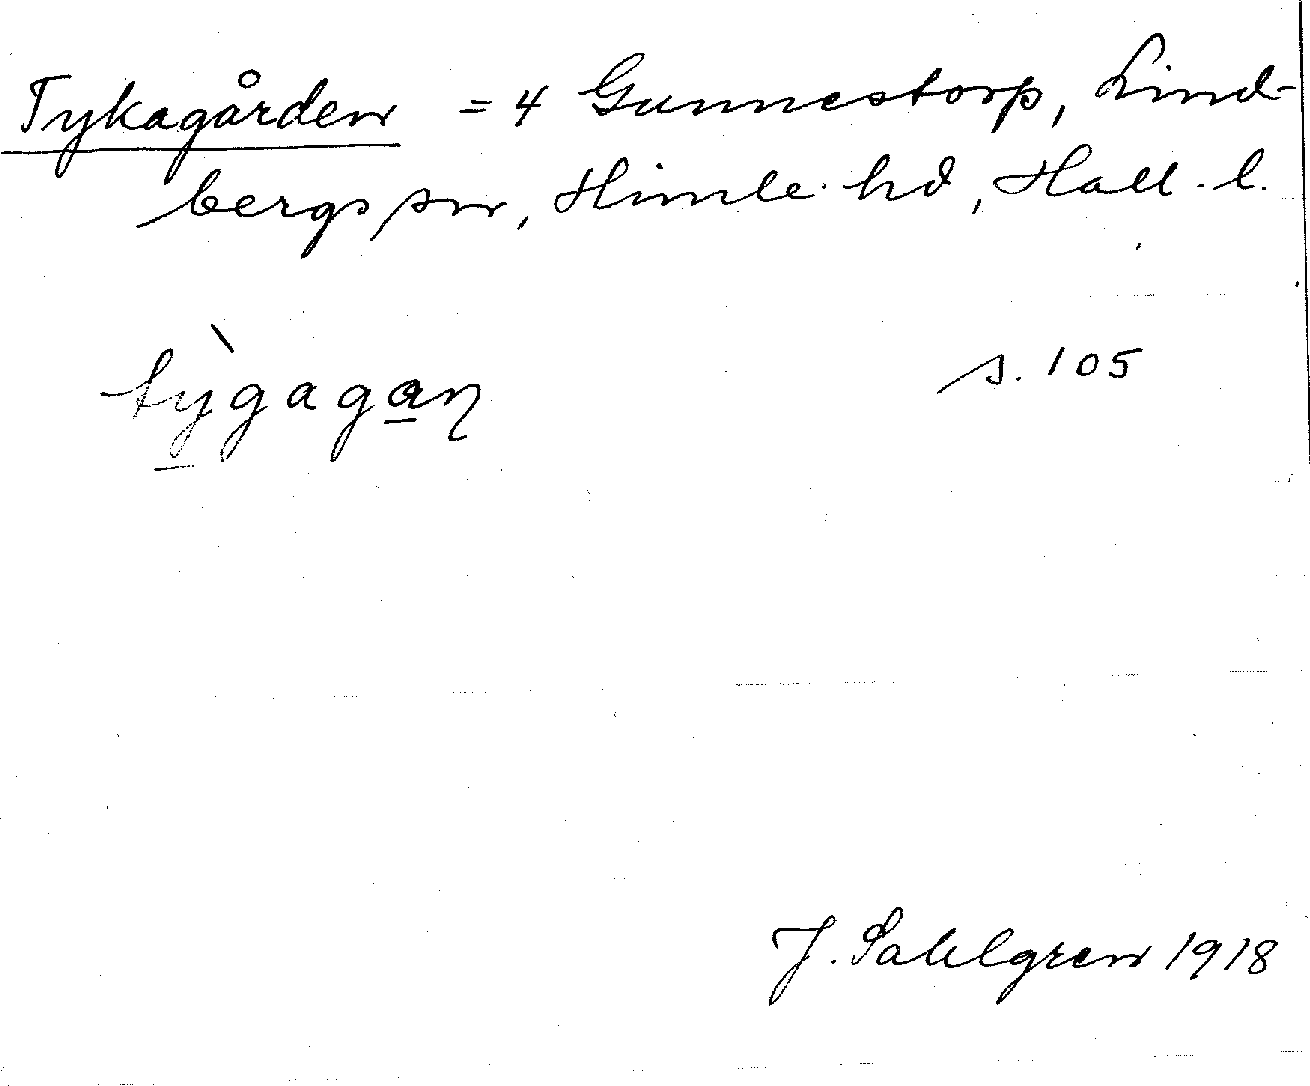 Tykagården = 4 Gunnestorp, Lind-
bergs sn, Himle hd, Hall. l.
tỳgagan̡
s. 105
J. Sahlgren 1918